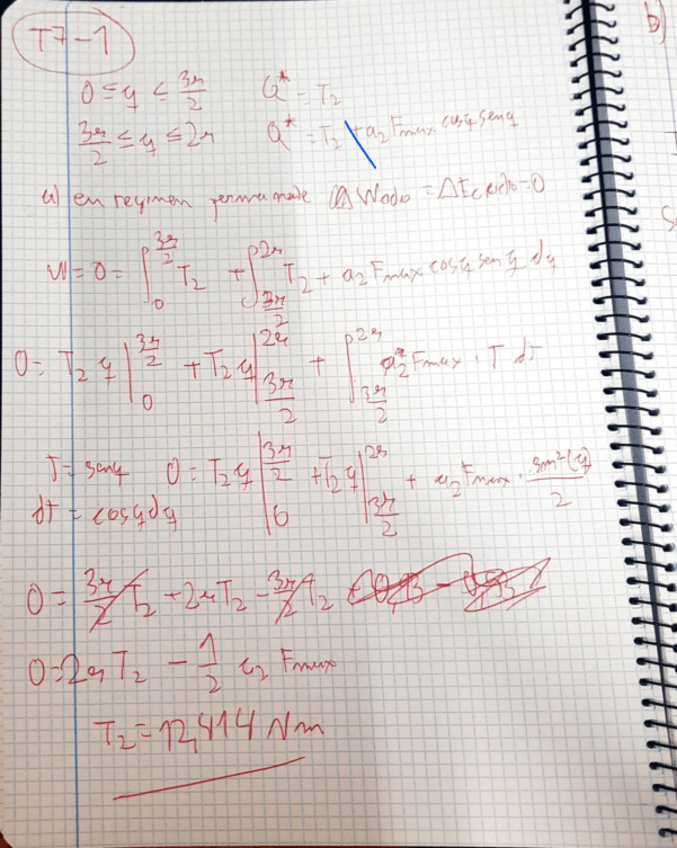 T7-1
b)
0 ≤ φ ≤ 3π/2 Q* = T₂
3π/2 ≤ φ ≤ 2π Q* = T₂ + a₂ Fmax cosφ senφ
a) en regimen permanente Wodo = ΔEc ciclo = 0
W = 0 = ∫₀^{3π/2} T₂ + ∫_{3π/2}^{2π} T₂ + a₂ Fmax cosφ senφ dφ
0 = T₂ φ |₀^{3π/2} + T₂ φ |_{3π/2}^{2π} + ∫_{3π/2}^{2π} a₂ Fmax · T dT
T = senφ 0 = T₂ φ |₀^{3π/2} + T₂ φ |_{3π/2}^{2π} + a₂ Fmax · sen²(φ)/2
dT = cosφ dφ
0 = 3π/2 T₂ + 2π T₂ - 3π/2 T₂
0 = 2π T₂ - 1/2 a₂ Fmax
T₂ = 12,414 Nm